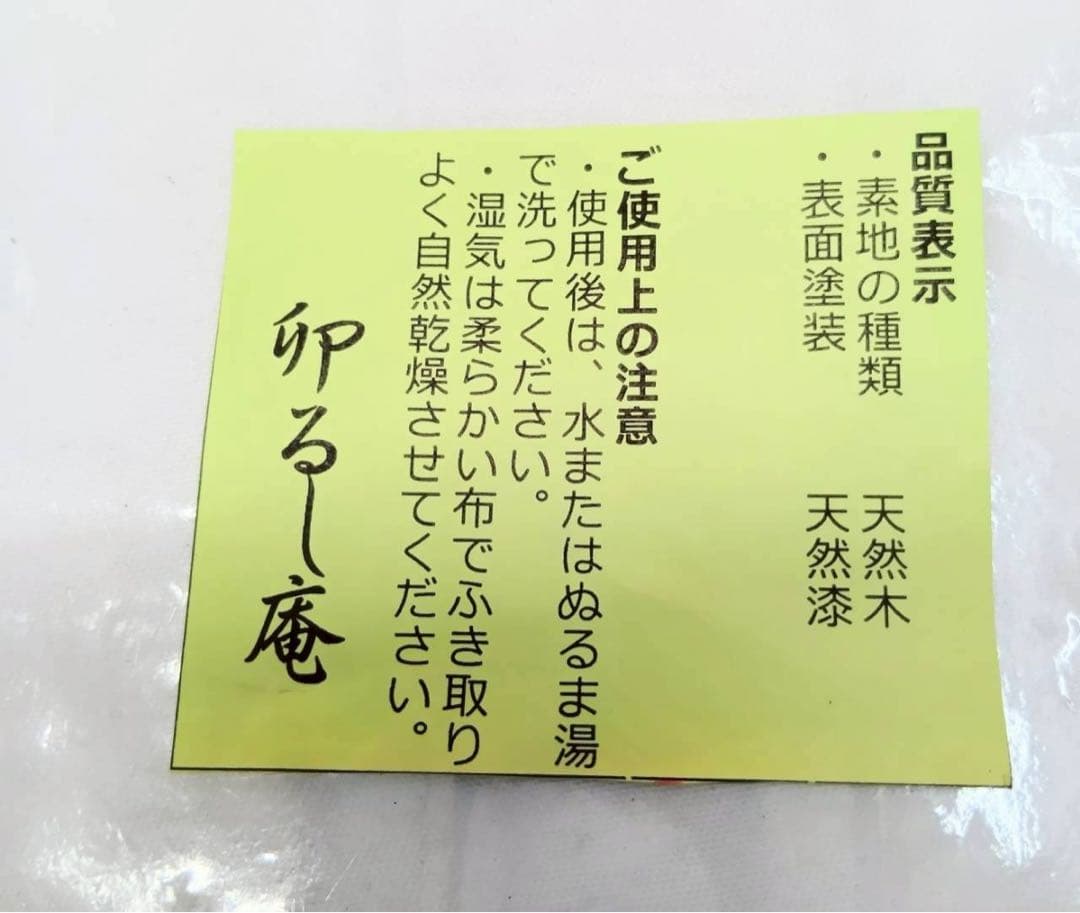 品質表示
・素地の種類　天然木
・表面塗装　天然漆
ご使用上の注意
・使用後は、水またはぬるま湯
で洗ってください。
・湿気は柔らかい布でふき取り
よく自然乾燥させてください。
卯るし庵